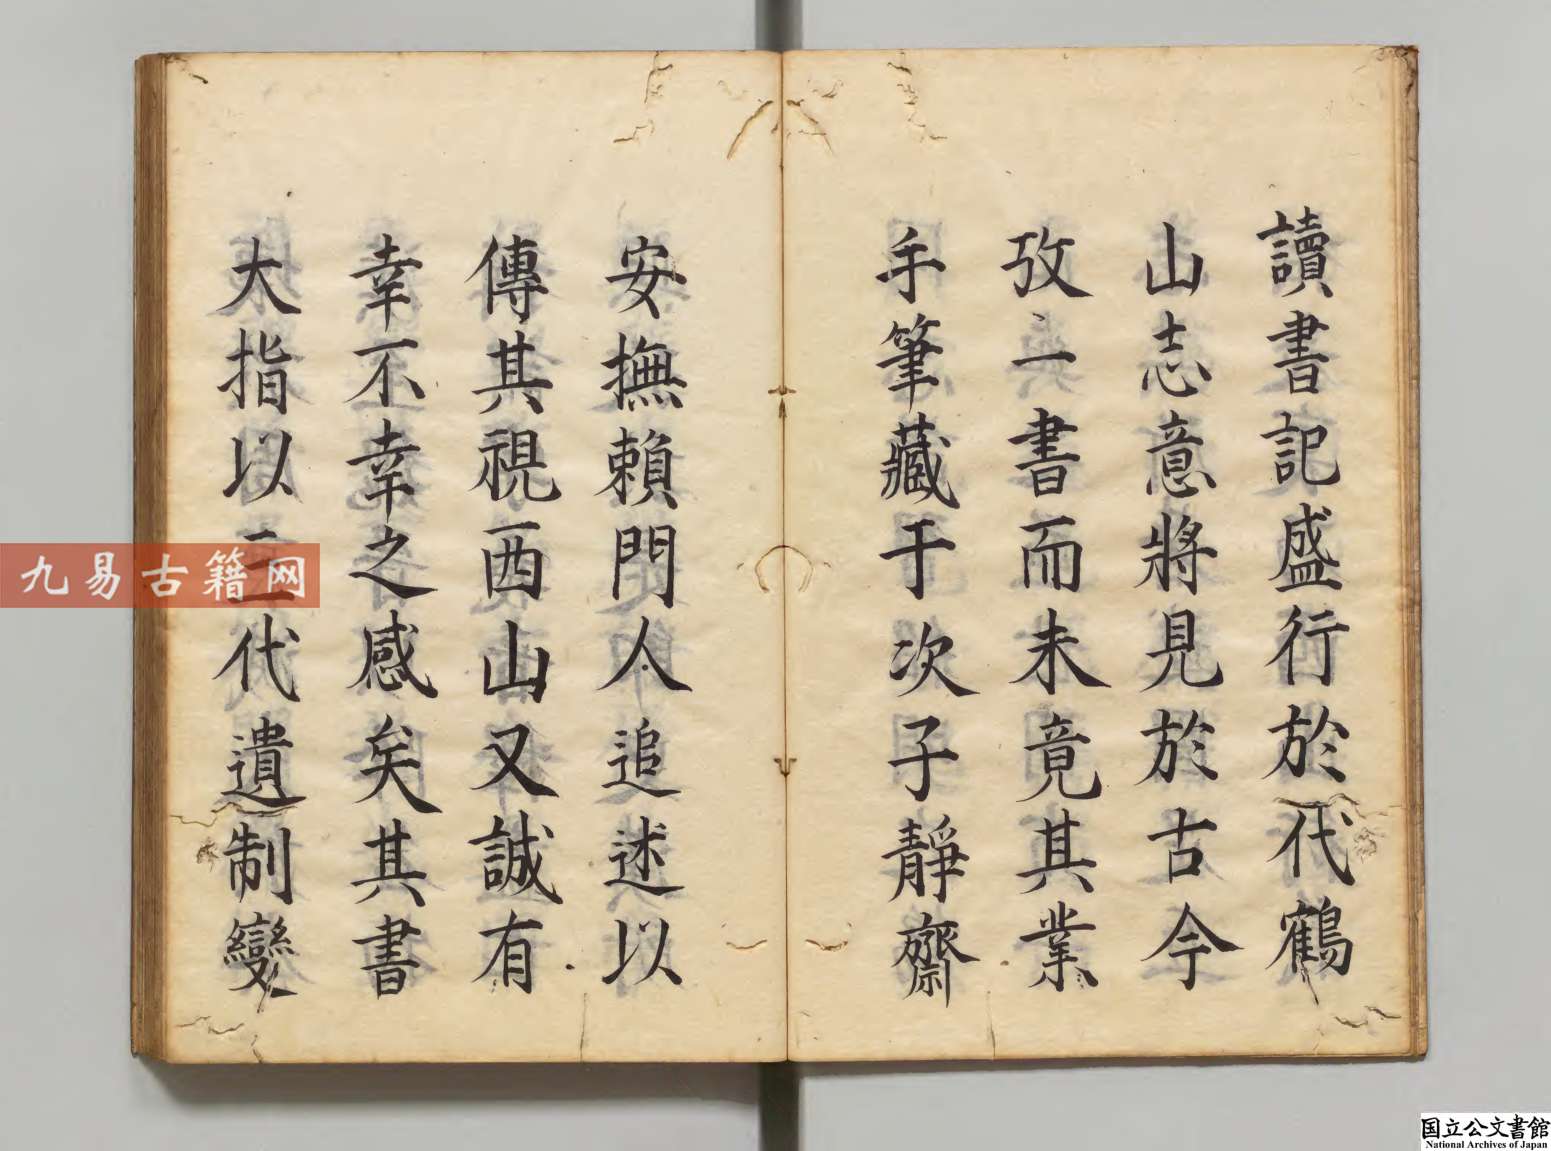 讀書記盛行於代鶴
山志意將見於古今
攷一書而未竟其業
手筆藏于次子靜齋
安撫賴門人追述以
傳其視西山又誠有
幸不幸之感矣其書
大指以三代遺制變
九易古籍网
国立公文書館
National Archives of Japan